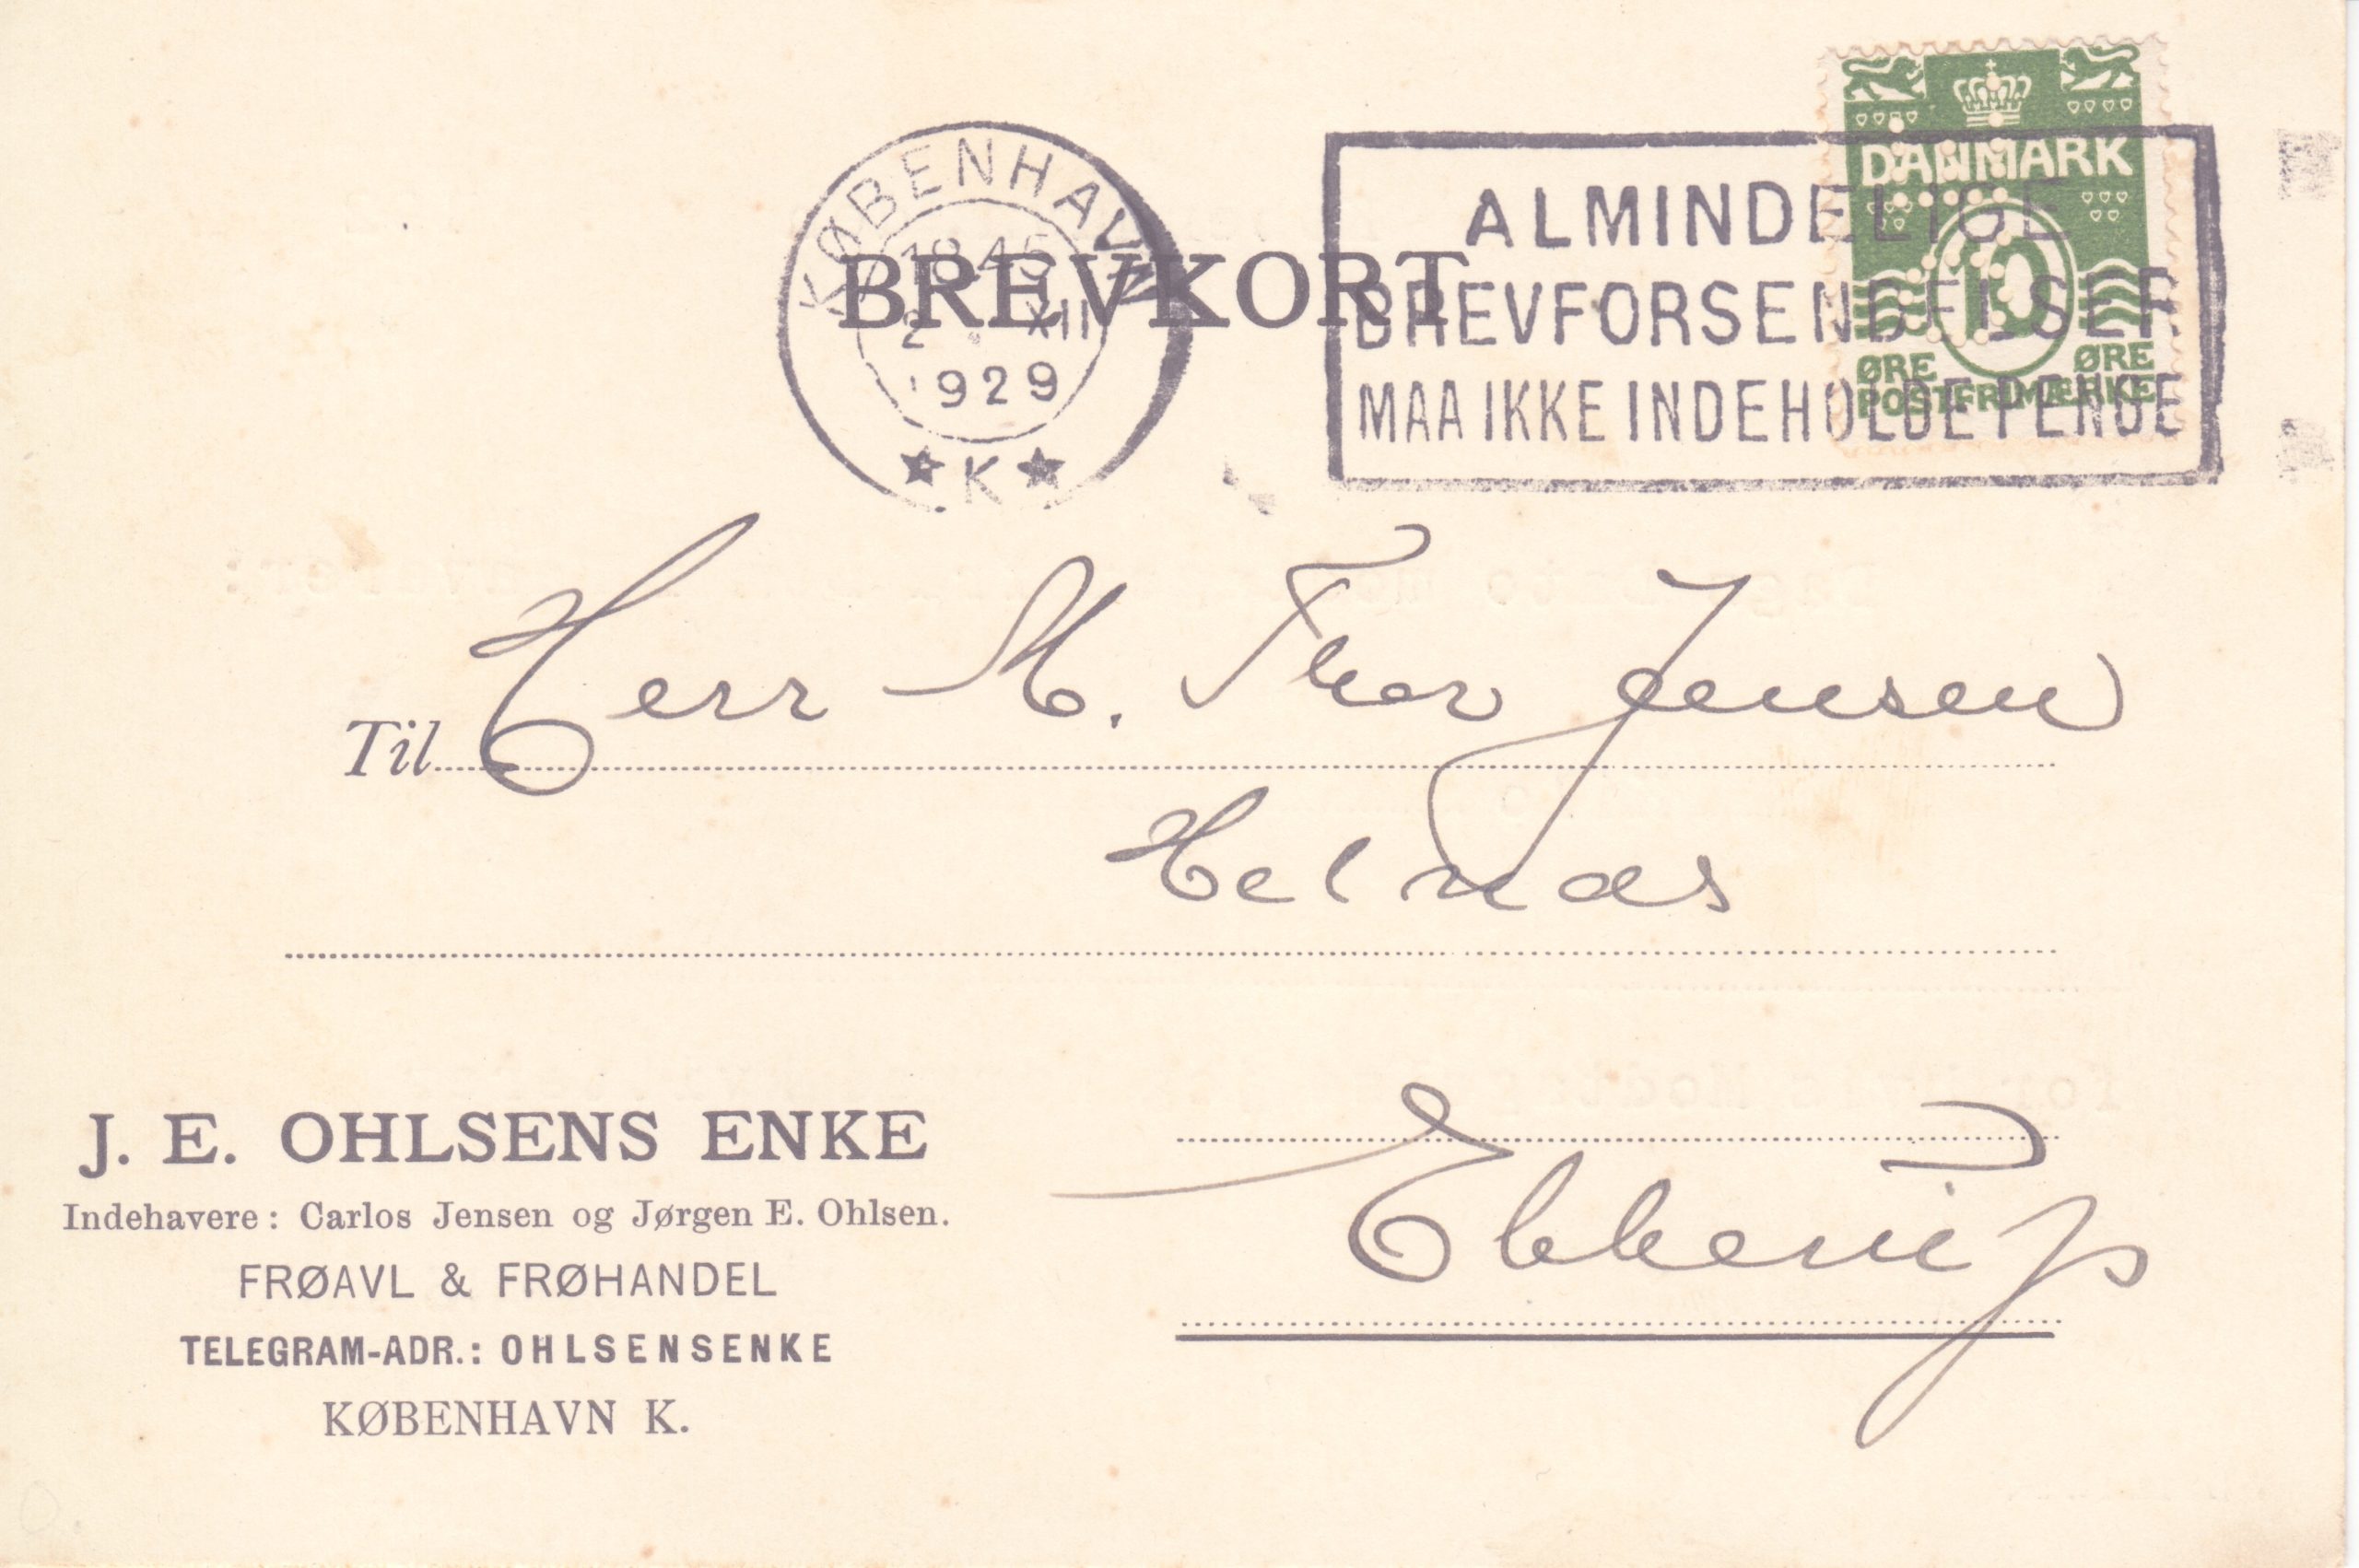 DANMARK
10
ØRE ØRE
POSTFRIMÆRKE
KØBENHAVN
18 45
2 XII
1929
★ K ★
ALMINDELIGE
BREVFORSENDELSER
MAA IKKE INDEHOLDE PENGE
BREVKORT
Til Herr M. Thor Jensen
Helnæs
Ebberup
J. E. OHLSENS ENKE
Indehavere: Carlos Jensen og Jørgen E. Ohlsen.
FRØAVL & FRØHANDEL
TELEGRAM-ADR.: OHLSENSENKE
KØBENHAVN K.